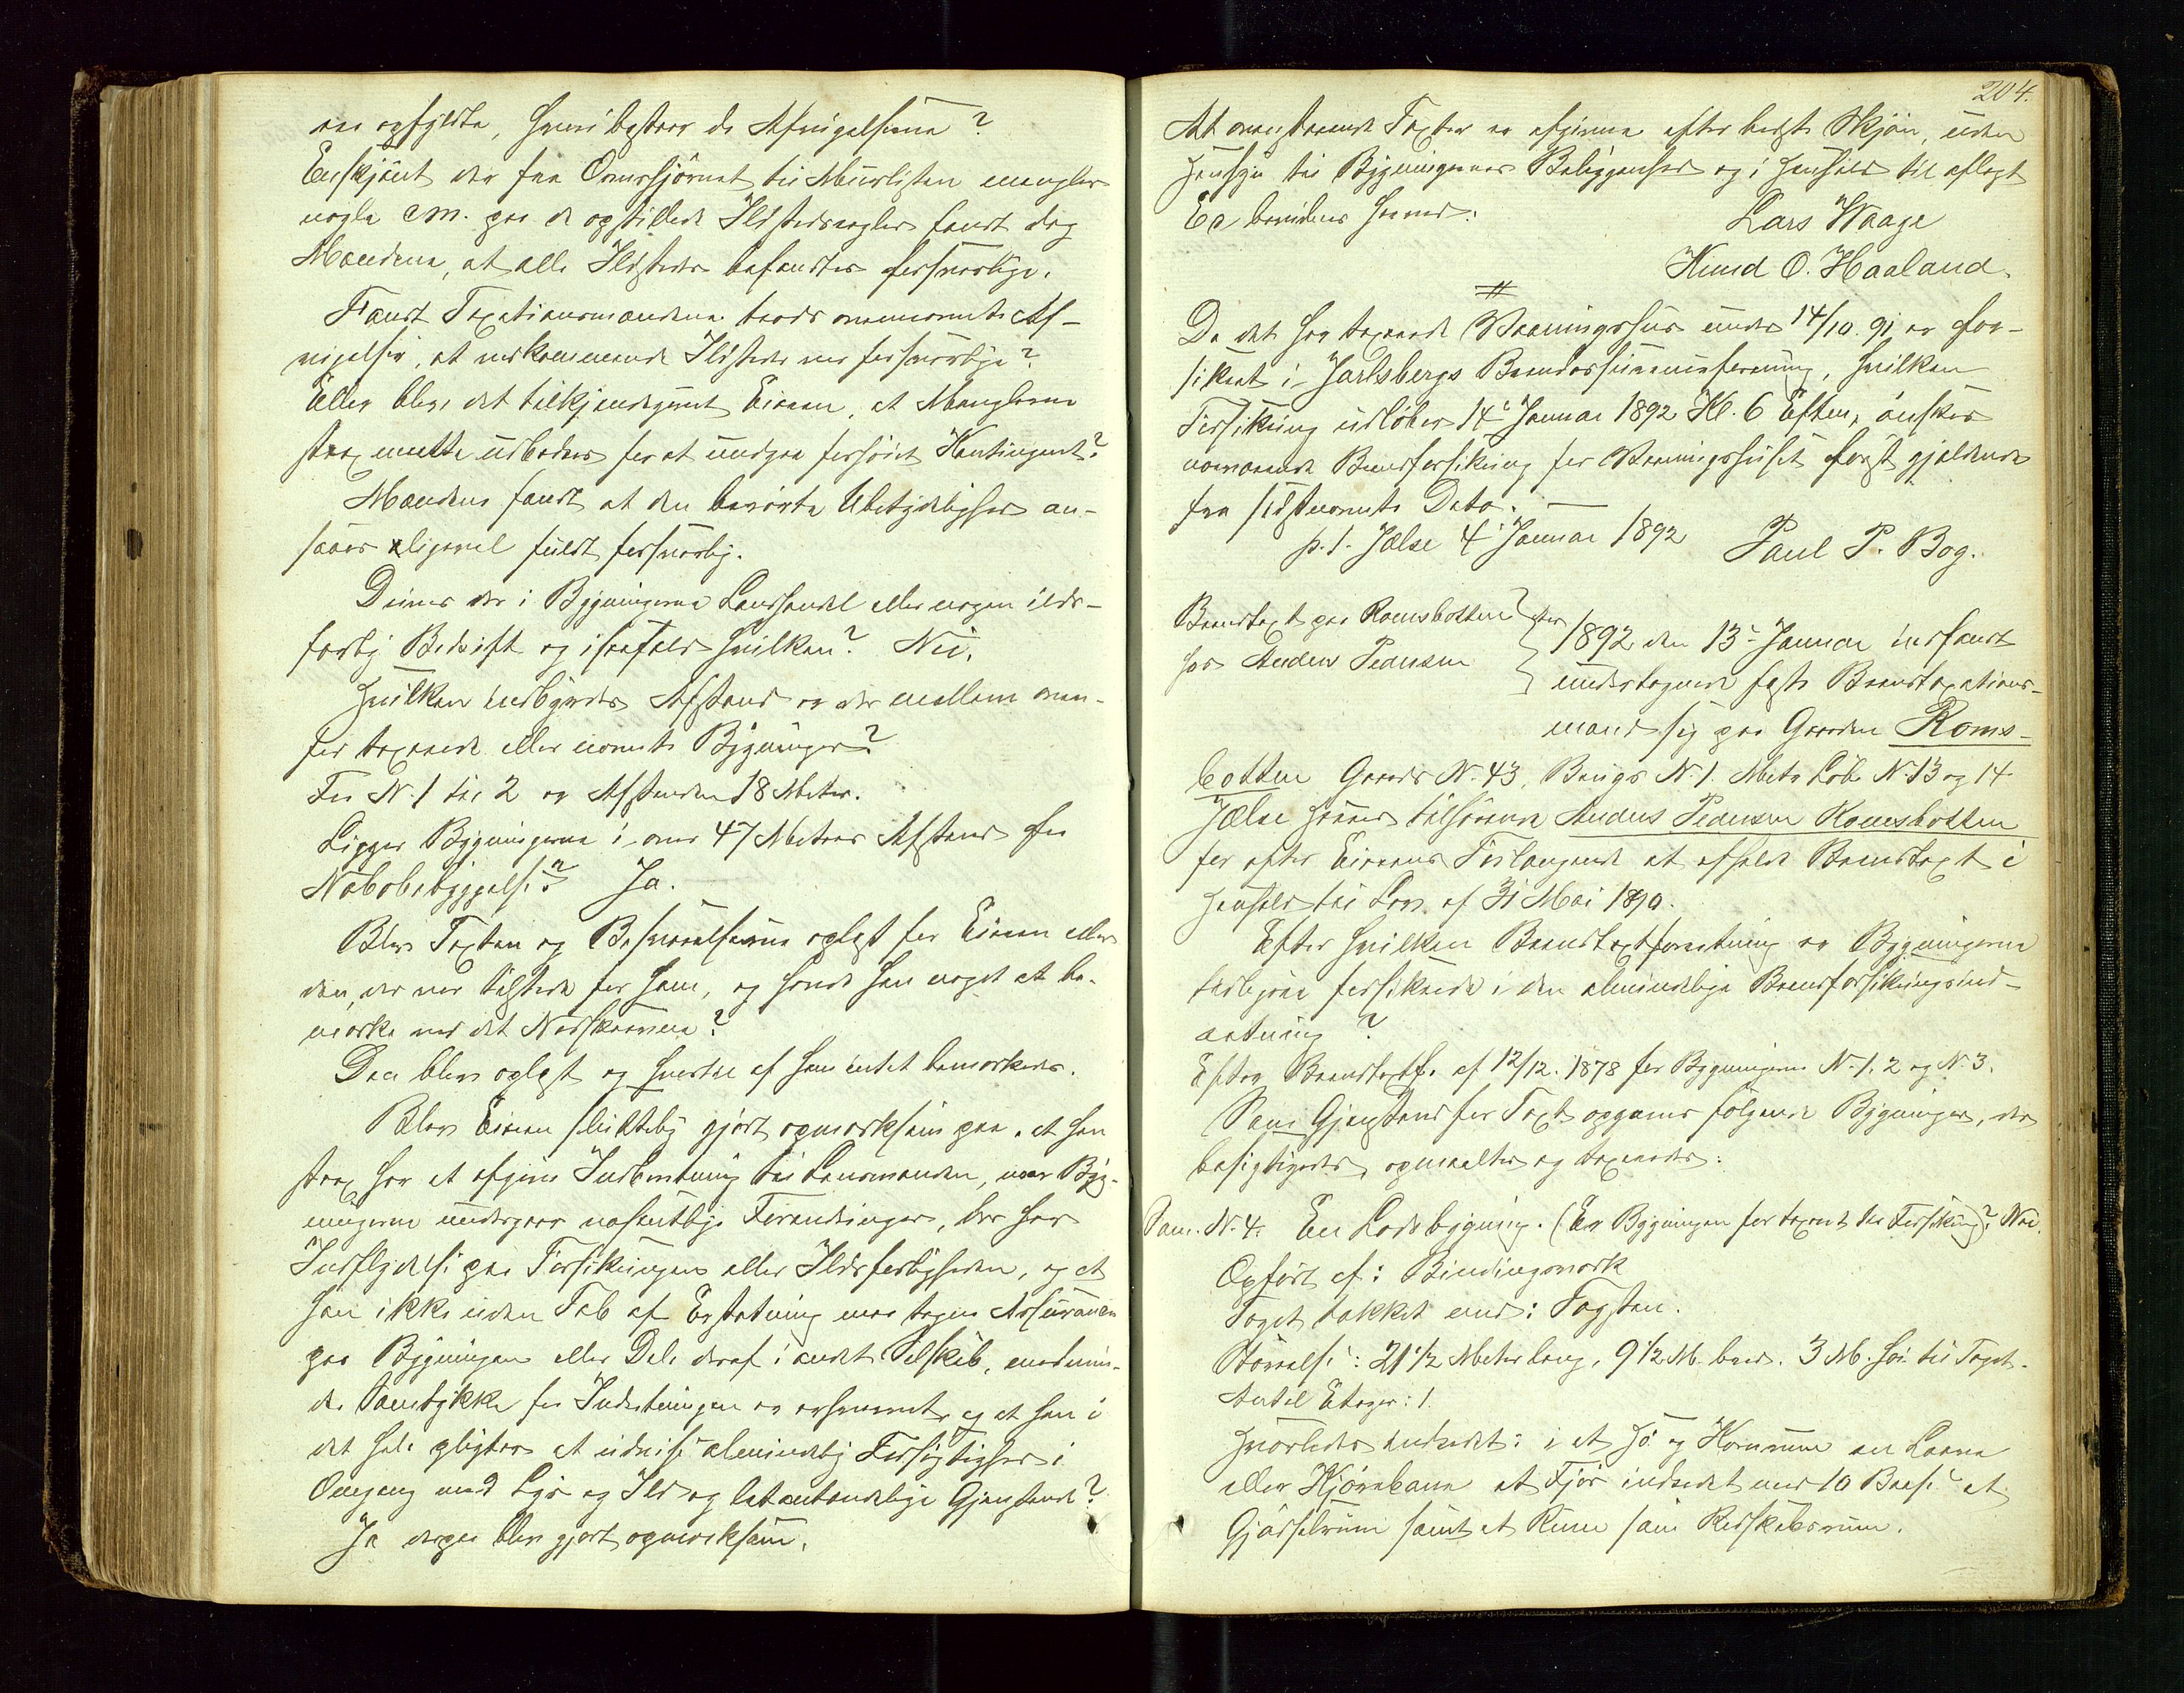 ere opfyldte, hvori bestaar da Afvigelserne?
Enskjønt der fra Ovnshjørnet til Murlisten mangler
nogle cm. paa de opstillede Ildstedsregler fandt dog
Mændene, at alle Ildsteder befandtes forsvarlige.
Fandt Taxationsmændene trods ovennævnte Af-
vigelser, at vedkommende Ildsteder var forsvarlige?
Eller blev det tilkjendegivet Eieren, at Manglerne
strax maatte udbedres for at undgaa forhøiet Kontingent?
Mændene fandt at den berørte Ubetydelighed an-
saaes ligevel fuldt forsvarlig.
Drives der i Bygningerne Landhandel eller nogen ilds-
farlig Bedrift og isaafald hvilken? Nei.
Hvilken indbyrdes Afstand er der mellem oven-
for taxerede eller nævnte Bygninger?
Fra N. 1 til 2 er Afstanden 18 Meter.
Ligger Bygningerne i over 47 Meters Afstand fra
Nabobebyggelse? Ja.
Blev Taxten og Besvarelserne oplæst for Eieren eller
den, der var tilstede for ham, og havde han noget at be-
mærke ved det Nedskrevne?
Den blev oplæst og hvortil af ham intet bemærkedes.
Blev Eieren skriftelig gjort opmærksom paa, at han
strax har at afgive Indberetning til Lensmanden, naar Byg-
ningerne undergaar væsentlige Forandringer, der har
Indflydelse paa Forsikringen eller Ildsfarligheden, og at
han ikke uden Tab af Erstatning maa tegne Assurance
paa Bygningen eller Dele deraf i andet Selskab, med min-
dre Samtykke fra Indretningen er erhvervet, og at han i
det hele pligter at udvise almindelig Forsigtighed i
Omgang med Lys og Ild og letantændelige Gjenstande?
Ja derpaa blev gjort opmerksom.
204.
At ovenstaaende Taxter er afgivne efter bedste Skjøn, uden
Hensyn til Bygningernes Beliggenhed og i Henhold til aflagt
Ed bevidnes herved.
Lars Waage
Knud O. Haaland.
Da det her taxerede Vaaningshus under 14/10. 91 er for-
sikret i Jarlsbergs Brandassuranceforening, hvilken
Forsikring udløber 14de Januar 1892 Kl. 6 Eftm, ønskes
nærværende Brandforsikring for Vaaningshuset først gjældende
fra sidstnævnte Dato. —
p. t. Jælse 4de Januar 1892 Paul P. Bog.
Brandtaxt paa Romsbotten
hos Anders Pedersen
Aar 1892 den 13de Januar indfandt
undertegnede faste Brandtaxations-
mænd sig paa Gaarden Roms-
botten Gaards N. 43, Brugs N. 1. Matr Løb N. 13 og 14
Jælse Herred tilhørende Anders Pedersen Romsbotten
for efter Eierens Forlangende at afholde Brandtaxt i
Henhold til Lov af 31 Mai 1890.
Efter hvilken Brandtaxtforretning er Bygningerne
tidligere forsikrede i den almindelige Brandforsikringsind-
retning?
Efter Brandtaxtf. af 12/12. 1878 for Bygningerne N. 1. 2 og N. 3.
Som Gjenstand for Taxt opgaves følgende Bygninger, der
besigtigedes, opmaaltes og taxeredes:
Som. N. 4. En Ladebygning. (Er Bygningen før taxeret til Forsikring)? Nei.
Opført af: Bindingsværk
Taget tækket med: Tagsten.
Størrelse: 21 1/2 Meter lang, 9 1/2 M. bred. 3 M. høi til Taget.
Antal Etager: 1.
Hvorledes indredet: i et Hø og Kornrum en Laave
eller Kjørebane et Fjøs indredet med 10 Baase et
Gjødselrum samt et Rum som Redskabsrum.